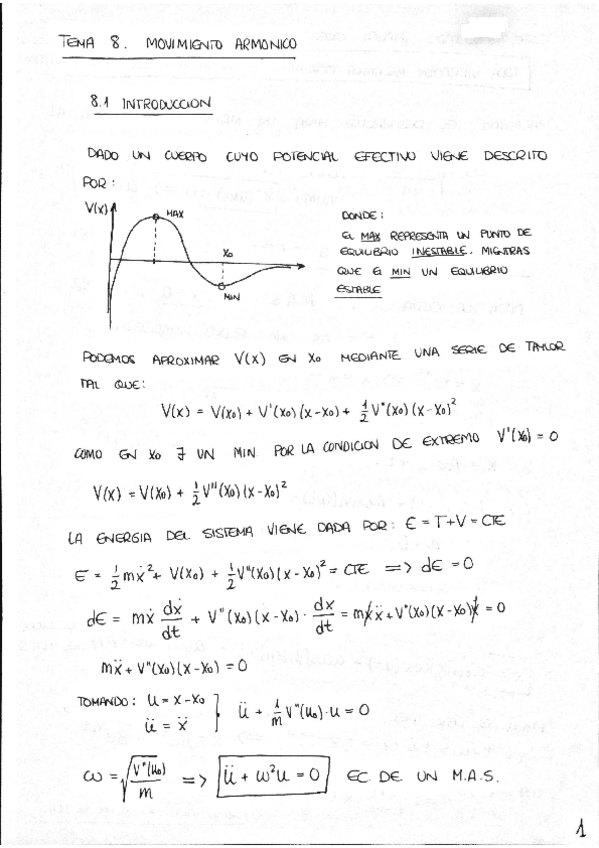 TEMA 8. MOVIMIENTO ARMONICO
8.1 INTRODUCCION
DADO UN CUERPO CUYO POTENCIAL EFECTIVO VIENE DESCRITO
POR:
V(x)
MAX
X₀
MIN
DONDE:
EL MAX REPRESENTA UN PUNTO DE
EQUILIBRIO INESTABLE. MIENTRAS
QUE EL MIN UN EQUILIBRIO
ESTABLE
PODEMOS APROXIMAR V(x) EN X₀ MEDIANTE UNA SERIE DE TAYLOR
TAL QUE:
V(x) = V(x₀) + V'(x₀)(x-x₀) + 1/2 V''(x₀)(x-x₀)²
COMO EN X₀ ∃ UN MIN. POR LA CONDICION DE EXTREMO V'(x₀) = 0
V(x) = V(x₀) + 1/2 V''(x₀)(x-x₀)²
LA ENERGIA DEL SISTEMA VIENE DADA POR: E = T+V = CTE
E = 1/2 mẋ² + V(x₀) + 1/2 V''(x₀)(x-x₀)² = CTE => dE = 0
dE = mẋ dẋ/dt + V''(x₀)(x-x₀) · dx/dt = mẋẍ + V''(x₀)(x-x₀)ẋ = 0
mẍ + V''(x₀)(x-x₀) = 0
TOMANDO: u = x-x₀
ü = ẍ } ü + 1/m V''(u₀)·u = 0
ω = √(V''(u₀)/m) => ü + ω²u = 0 EC. DE UN M.A.S.
1